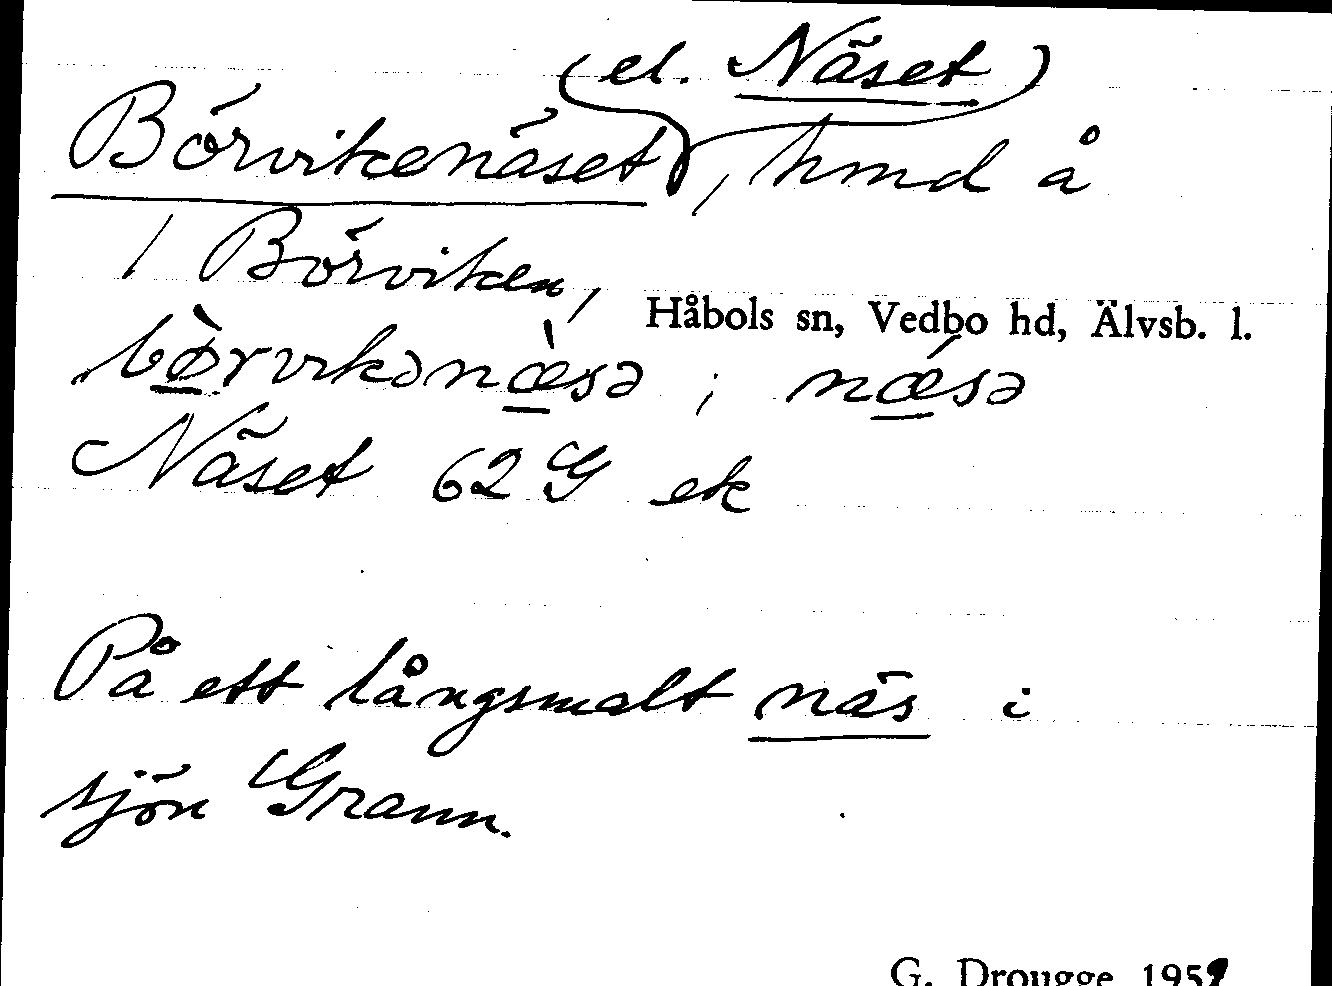 (el. Näset)
Börvikenäset, hmd å
1 Börviken,
Håbols sn, Vedbo hd, Älvsb. l.
bø̀rvikənæ̀sə ; nǽsə
Näset 62 G ek
På ett långsmalt näs i
sjön Grann.
G. Drougge 1959